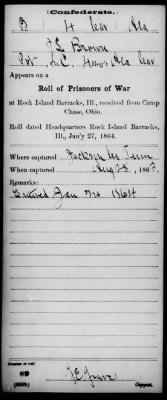 (Confederate.)
B 4 Cav Ala
J L Brown
Pvt Co C Ala Cav
Appears on a
Roll of Prisoners of War
at Rock Island Barracks, Ill., received from Camp
Chase, Ohio.
Roll dated Headquarters Rock Island Barracks,
Ill., Jan'y 27, 1864.
Where captured Jackson Co Tenn
When captured Aug 25, 1863.
Remarks:
Entered Jan 24 1864
Number of roll:
Copyist.